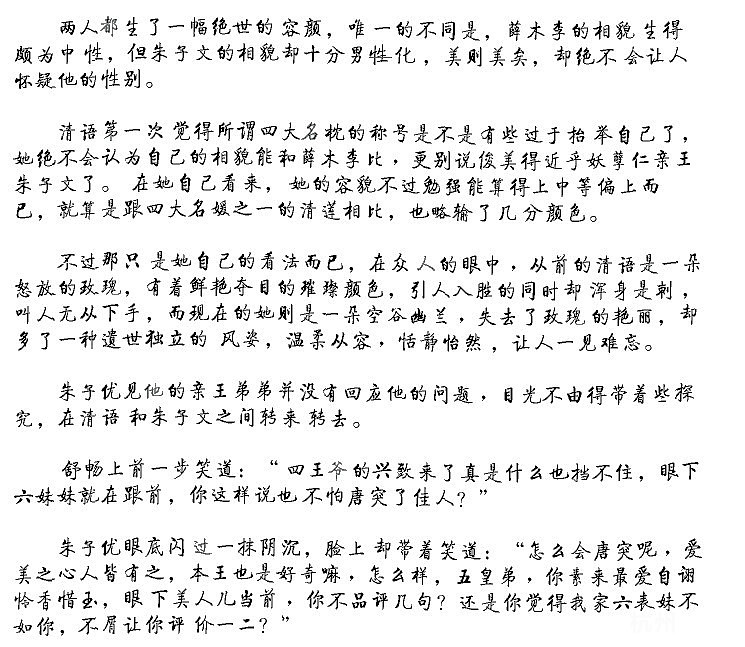 两人都生了一幅绝世的容颜，唯一的不同是，薛木李的相貌生得
颇为中性，但朱子文的相貌却十分男性化，美则美矣，却绝不会让人
怀疑他的性别。
清语第一次觉得所谓四大名枕的称号是不是有些过于抬举自己了，
她绝不会认为自己的相貌能和薛木李比，更别说俊美得近乎妖孽仁亲王
朱子文了。在她自己看来，她的容貌不过勉强能算得上中等偏上而
已，就算是跟四大名媛之一的清莲相比，也略输了几分颜色。
不过那只是她自己的看法而已，在众人的眼中，从前的清语是一朵
怒放的玫瑰，有着鲜艳夺目的璀璨颜色，引人入胜的同时却浑身是刺，
叫人无从下手，而现在的她则是一朵空谷幽兰，失去了玫瑰的艳丽，却
多了一种遗世独立的风姿，温柔从容，恬静怡然，让人一见难忘。
朱子优见他的亲王弟弟并没有回应他的问题，目光不由得带着些探
究，在清语和朱子文之间转来转去。
舒畅上前一步笑道：“四王爷的兴致来了真是什么也挡不住，眼下
六妹妹就在跟前，你这样说也不怕唐突了佳人？”
朱子优眼底闪过一抹阴沉，脸上却带着笑道：“怎么会唐突呢，爱
美之心人皆有之，本王也是好奇嘛，怎么样，五皇弟，你素来最爱自诩
怜香惜玉，眼下美人儿当前，你不品评几句？还是你觉得我家六表妹不
如你，不屑让你评价一二？”